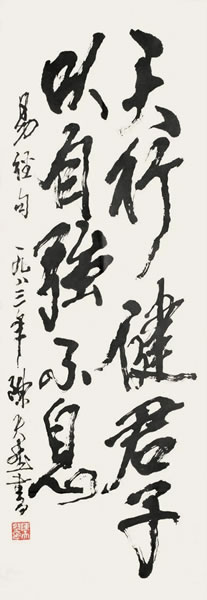 天行健君子
以自強不息
易經句 一九八三年 陳大羽書